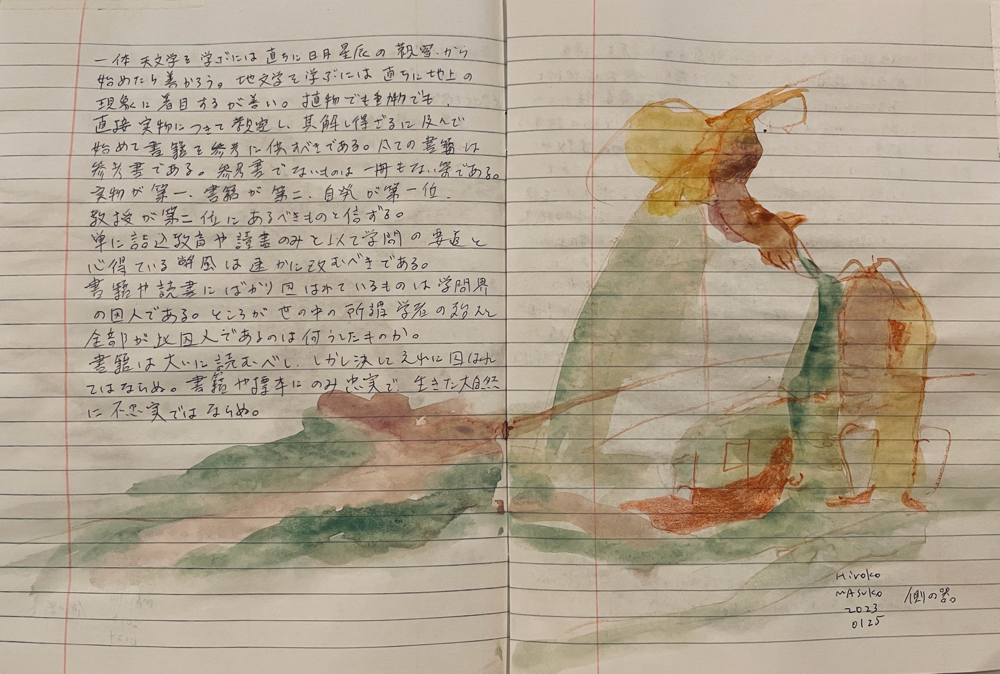 一体天文学を学ぶには直ちに日月星辰の観察から
始めたら善かろう。地文学を学ぶには直ちに地上の
現象に着目するが善い。植物でも動物でも、
直接実物につきて観察し、其解し得ざるに及んで
始めて書籍を参考に供すべきである。凡ての書籍は
参考書である。参考書でないものは一冊もない筈である。
実物が第一、書籍が第二、自発が第一位、
教授が第二位にあるべきものと信ずる。
単に詰込教育や読書のみを以て学問の要道と
心得ている弊風は速かに改むべきである。
書籍や読書にばかり囚はれているものは学問界
の囚人である。ところが世の中の所謂学者の殆んど
全部が此囚人であるのは何うしたものか。
書籍は大いに読むべし、しかし決して之れに囚はれ
てはならぬ。書籍や標本にのみ忠実で、生きた大自然
に不忠実ではならぬ。
Hiroko
MASUKO
2023
0125
側の器。